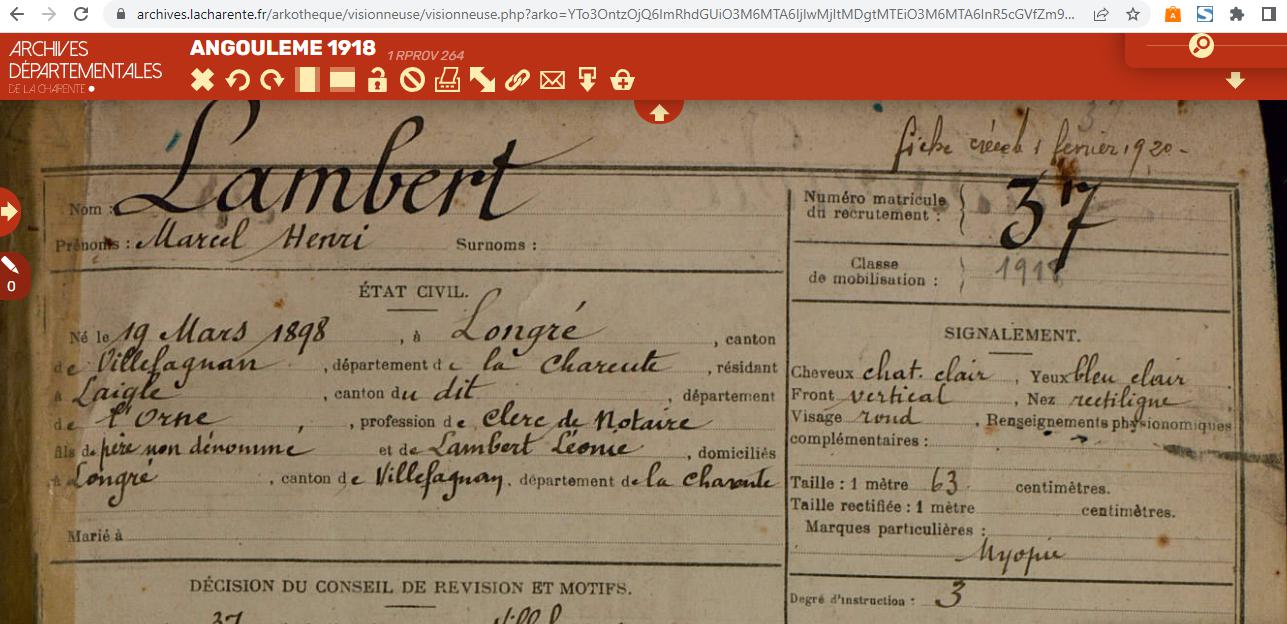 archives.lacharente.fr/arkotheque/visionneuse/visionneuse.php?arko=YTo3OntzOjQ6ImRhdGUiO3M6MTA6IjIwMjItMDgtMTEiO3M6MTA6InR5cGVfZm9...
ARCHIVES
DÉPARTEMENTALES
DE LA CHARENTE
ANGOULEME 1918 1 RPROV 264
0
fiche créée 1 février 1920 -
Nom : Lambert
Prénoms : Marcel Henri Surnoms :
Numéro matricule
du recrutement : 37
Classe
de mobilisation : 1918
ÉTAT CIVIL.
Né le 19 Mars 1898, à Longré, canton
de Villefagnan, département de la Charente, résidant
à Laigle, canton du dit, département
de l'Orne, profession de Clerc de Notaire
fils de père non dénommé et de Lambert Léonie, domiciliés
à Longré, canton de Villefagnan, département de la Charente
Marié à
SIGNALEMENT.
Cheveux chat. clair, Yeux bleu clair
Front vertical, Nez rectiligne
Visage rond, Renseignements physionomiques
complémentaires :
Taille : 1 mètre 63 centimètres.
Taille rectifiée : 1 mètre centimètres.
Marques particulières :
Myopie
Degré d'instruction : 3
DÉCISION DU CONSEIL DE REVISION ET MOTIFS.
37